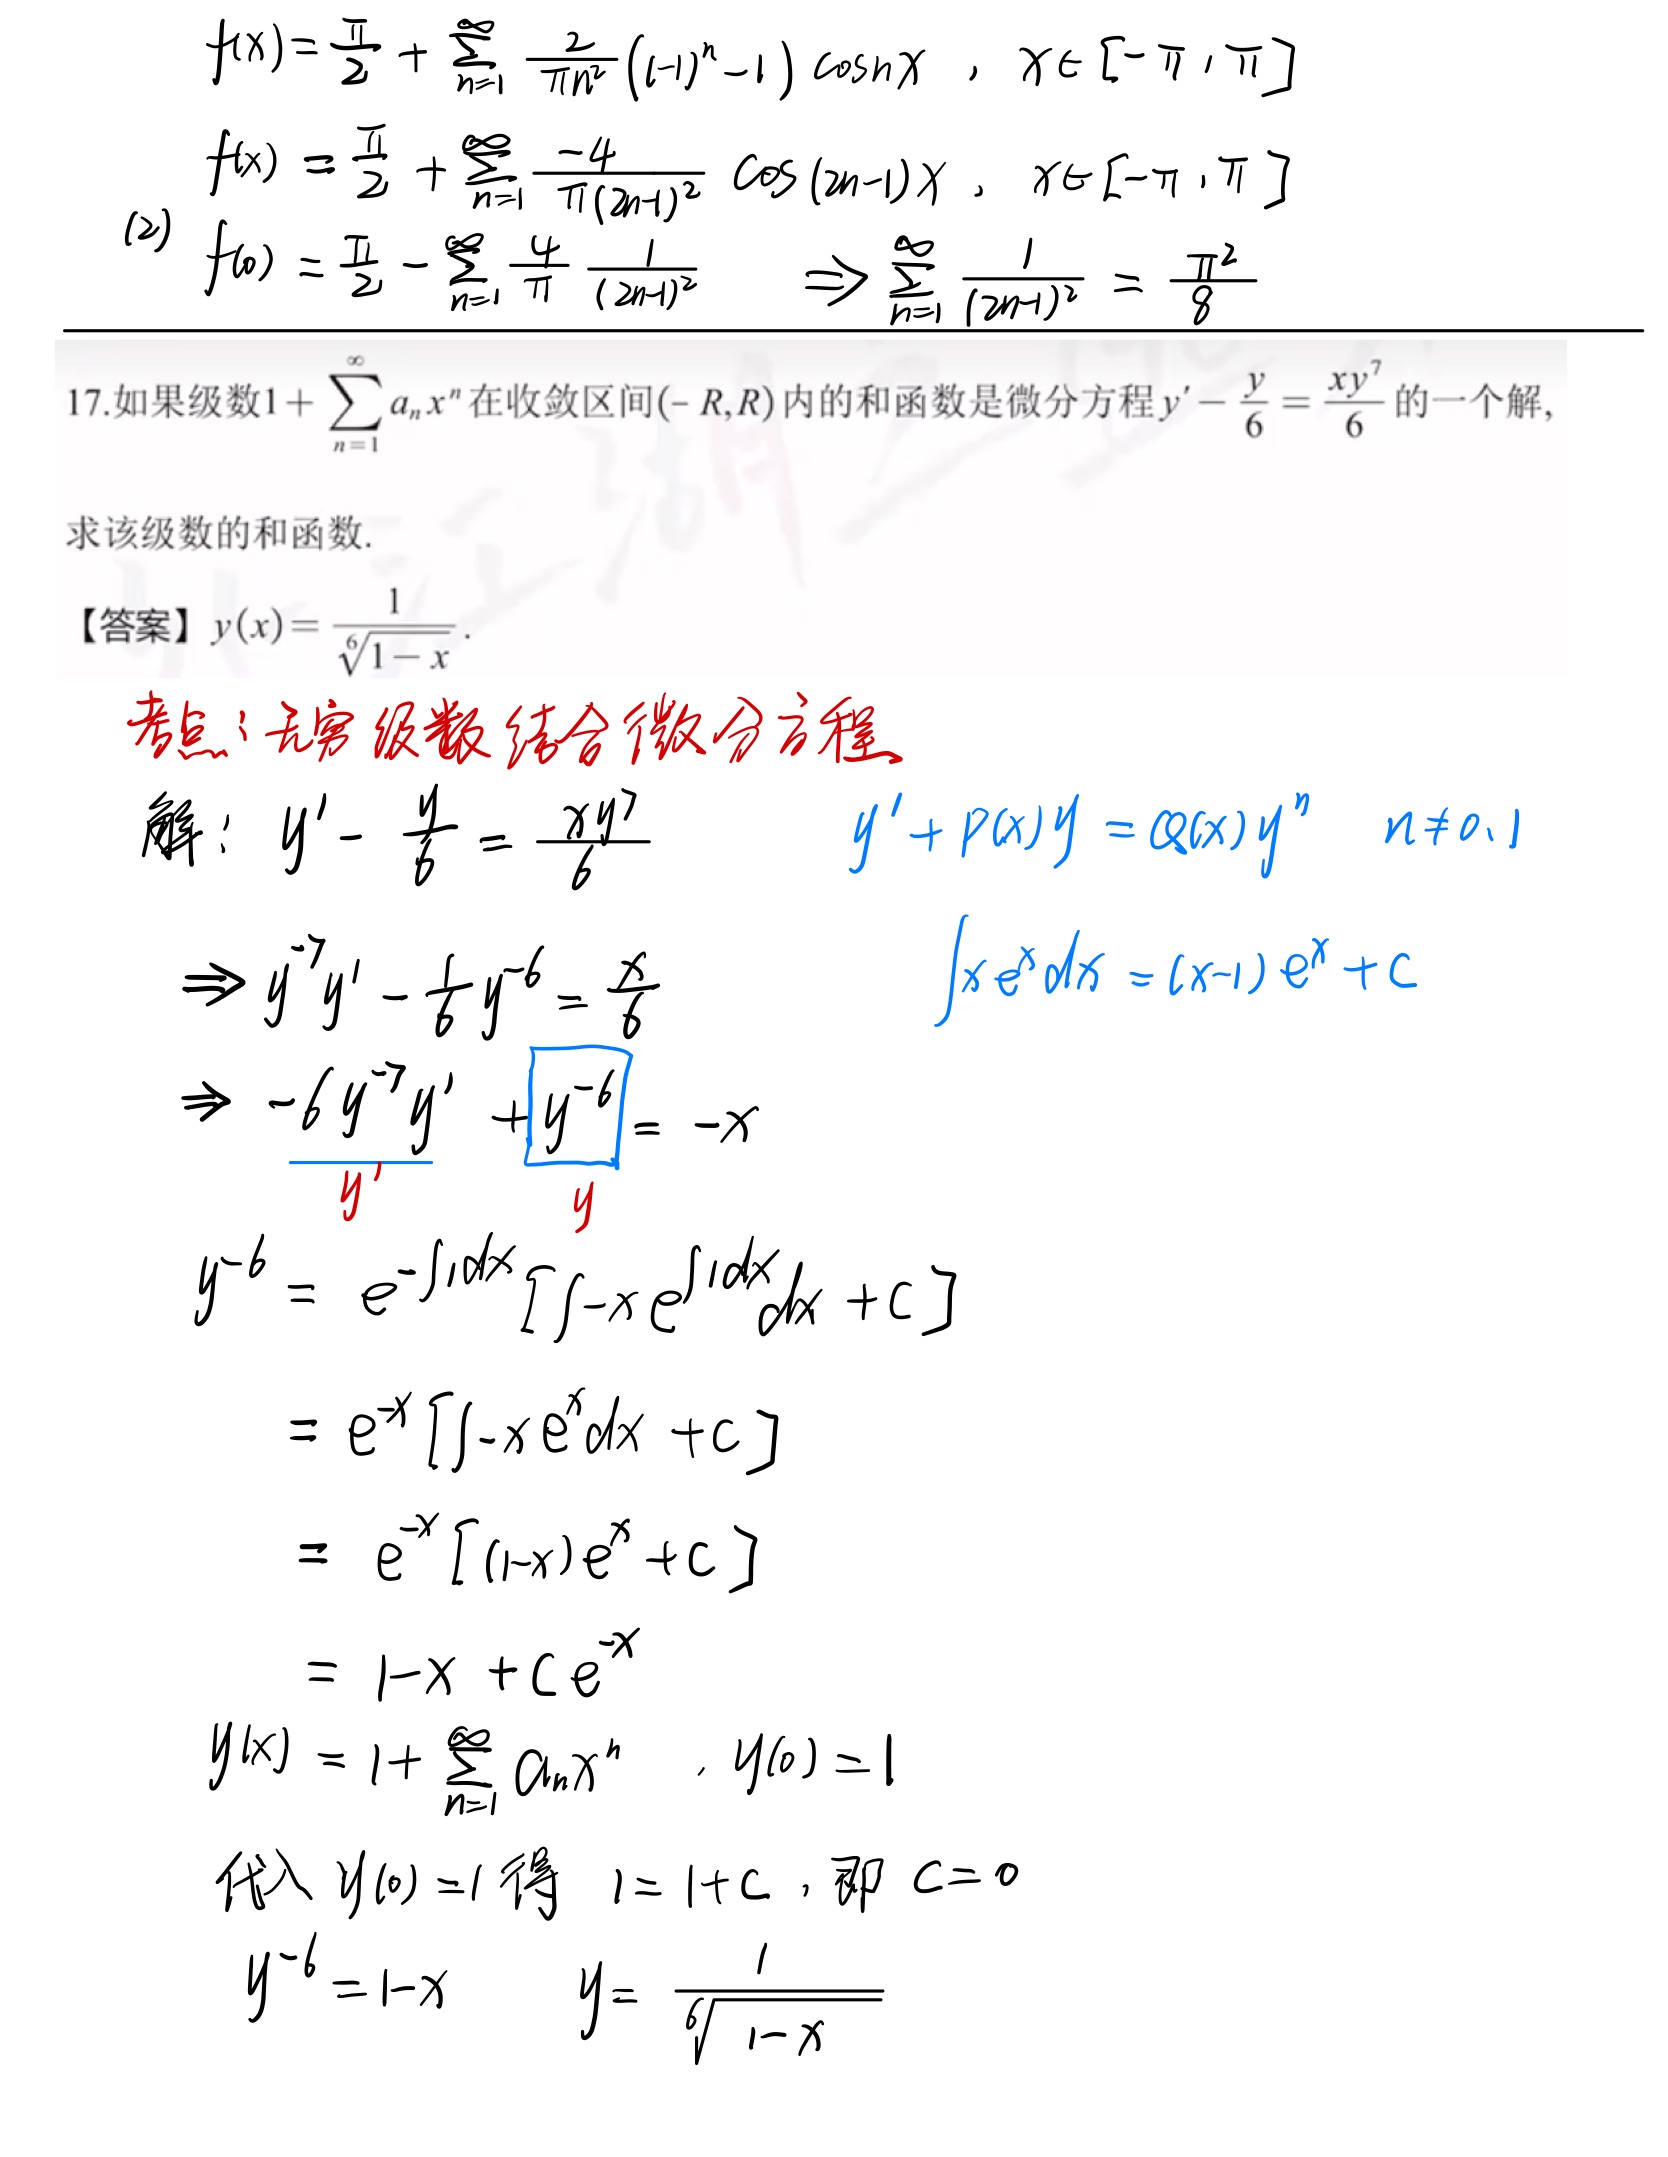 f(x) = π/2 + ∑_{n=1}^{∞} 2/(πn²) ((-1)ⁿ - 1) cosnx , x∈[-π, π]
f(x) = π/2 + ∑_{n=1}^{∞} -4/(π(2n-1)²) cos(2n-1)x , x∈[-π, π]
(2) f(0) = π/2 - ∑_{n=1}^{∞} 4/π 1/(2n-1)² ⇒ ∑_{n=1}^{∞} 1/(2n-1)² = π²/8
17.如果级数1+∑_{n=1}^{∞} aₙxⁿ在收敛区间(-R,R)内的和函数是微分方程y′ - y/6 = xy⁷/6 的一个解,
求该级数的和函数.
【答案】y(x) = 1/⁶√(1-x) .
考点:无穷级数结合微分方程
解: y′ - y/6 = xy⁷/6
y′ + P(x)y = Q(x)yⁿ n≠0、1
⇒ y⁻⁷y′ - 1/6 y⁻⁶ = x/6
∫xeˣdx = (x-1)eˣ + C
⇒ -6y⁻⁷y′ + y⁻⁶ = -x
y′ y
y⁻⁶ = e^{-∫1dx} [∫-x e^{∫1dx} dx + C]
= e⁻ˣ [∫-xeˣdx + C]
= e⁻ˣ [(1-x)eˣ + C]
= 1-x + Ce⁻ˣ
y(x) = 1+ ∑_{n=1}^{∞} aₙxⁿ , y(0) = 1
代入 y(0) = 1 得 1 = 1+C , 即 C = 0
y⁻⁶ = 1-x y = 1/⁶√(1-x)